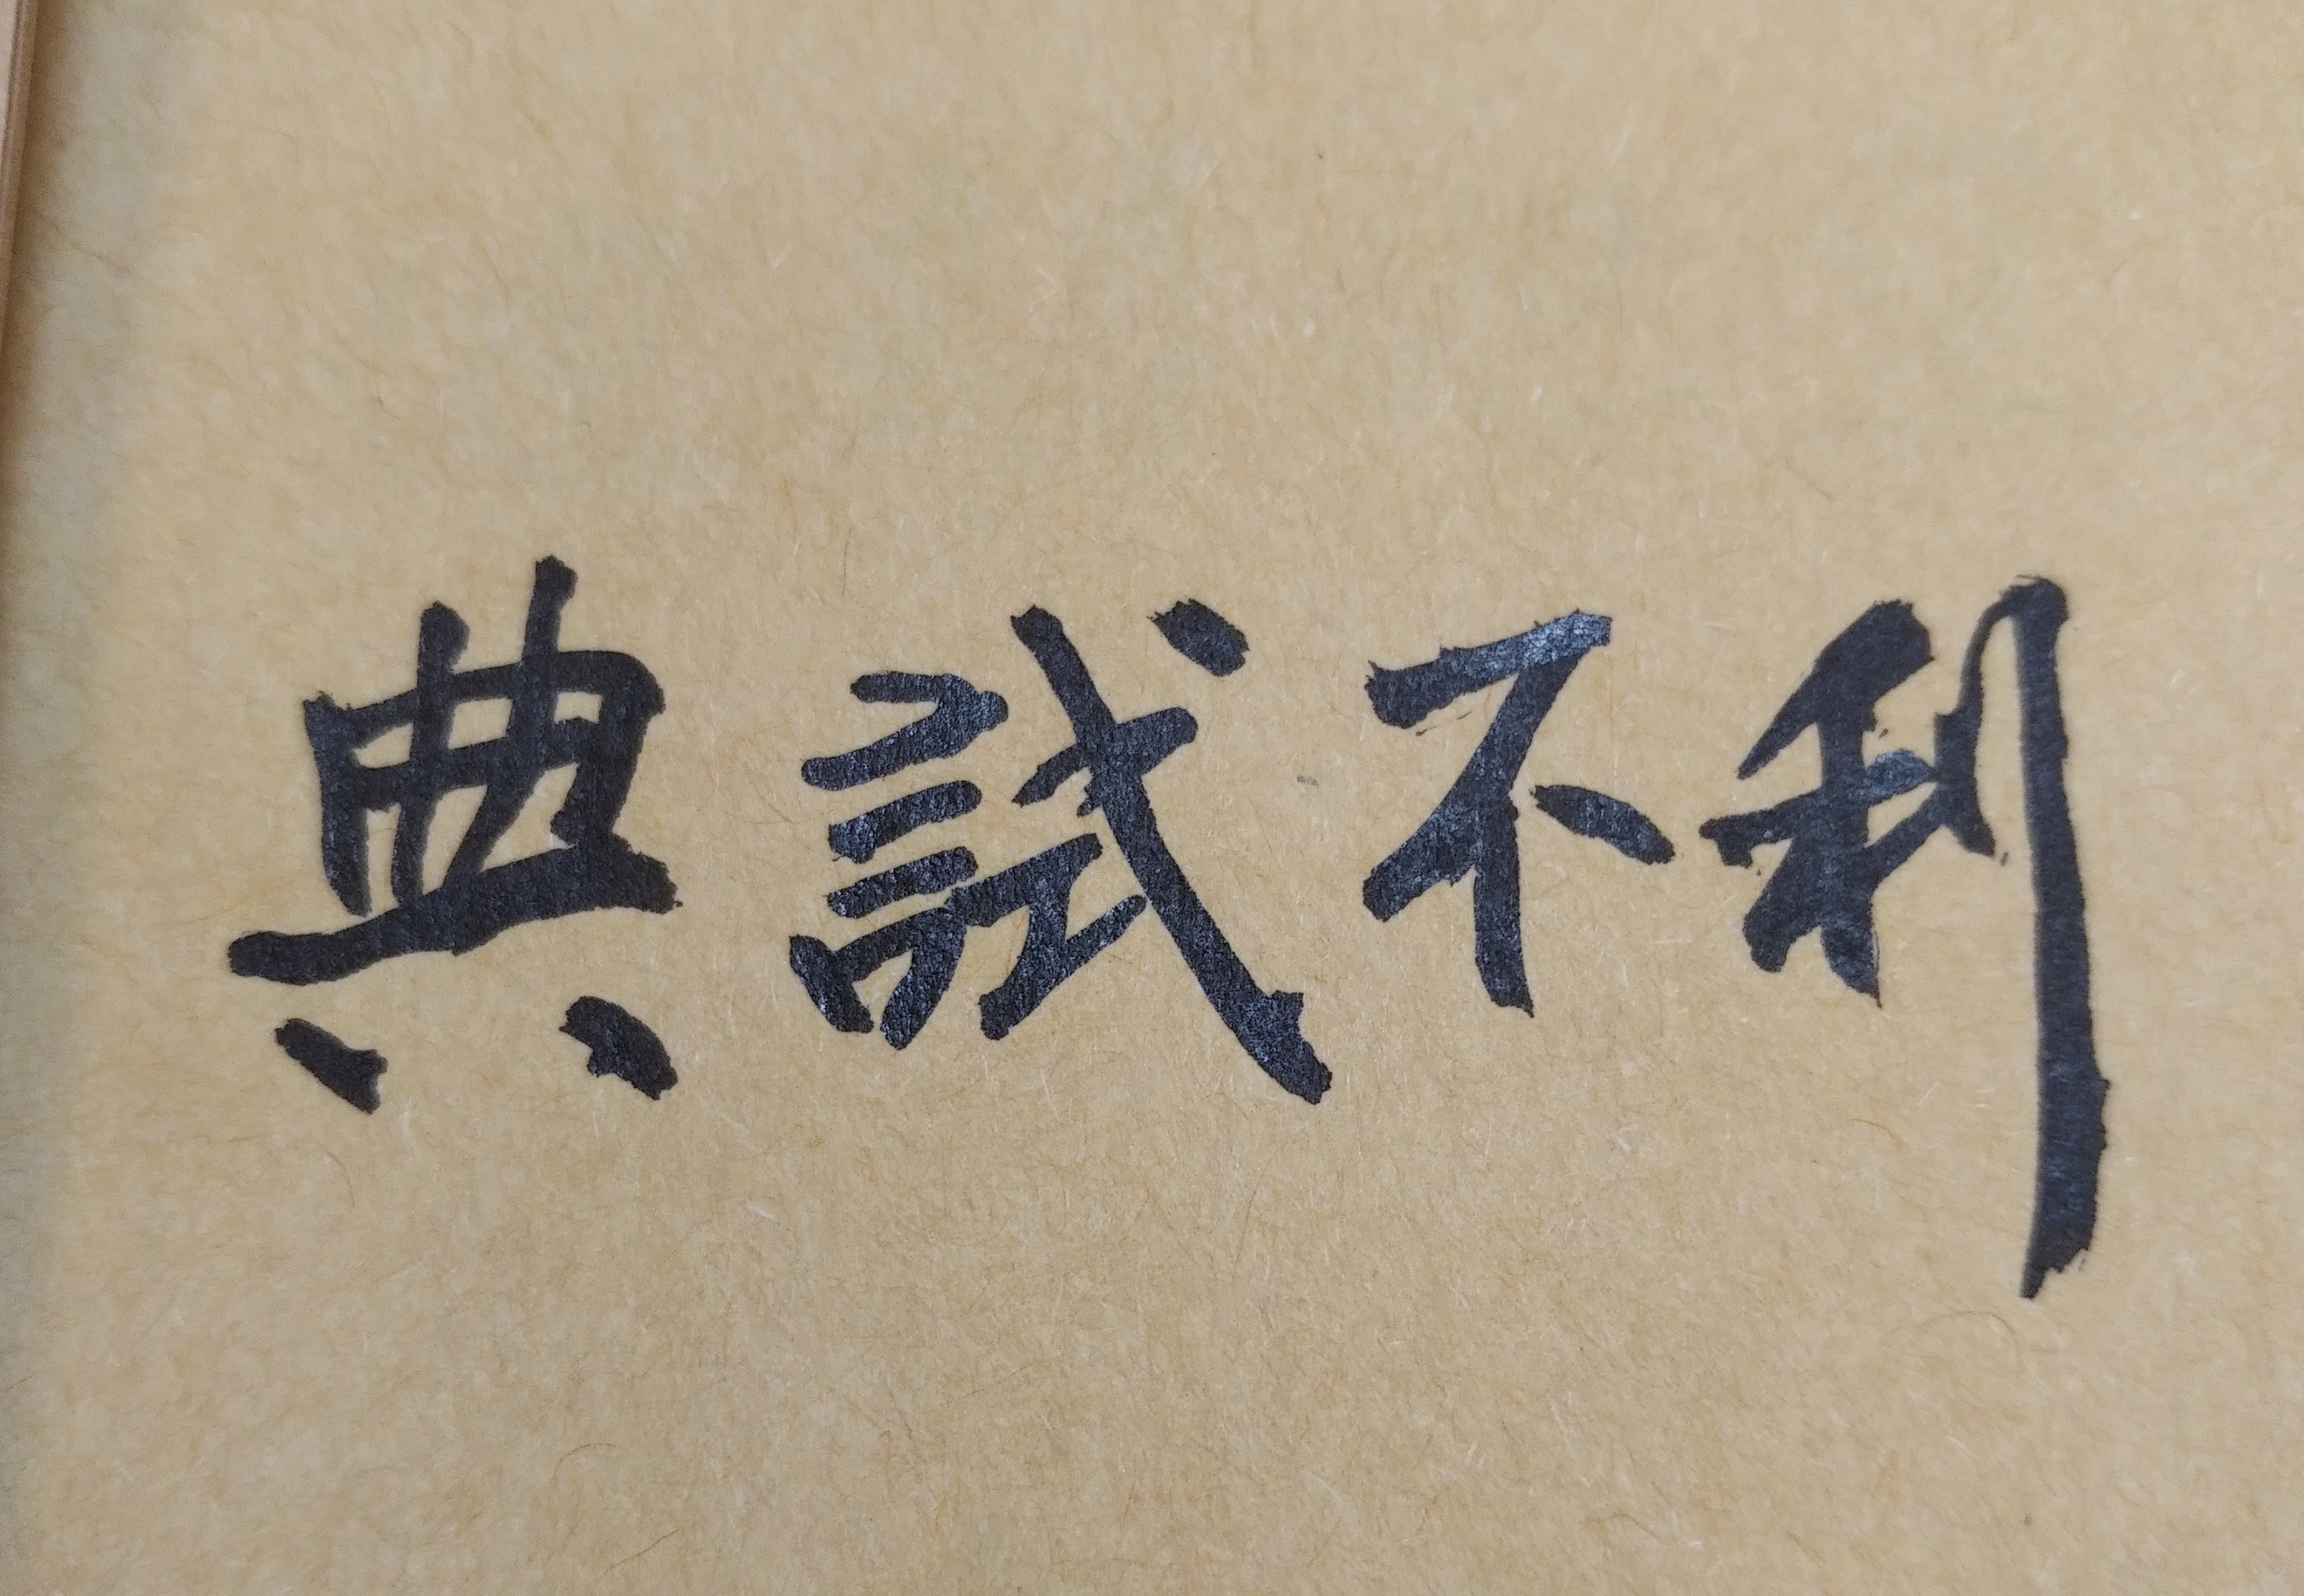 典試不利